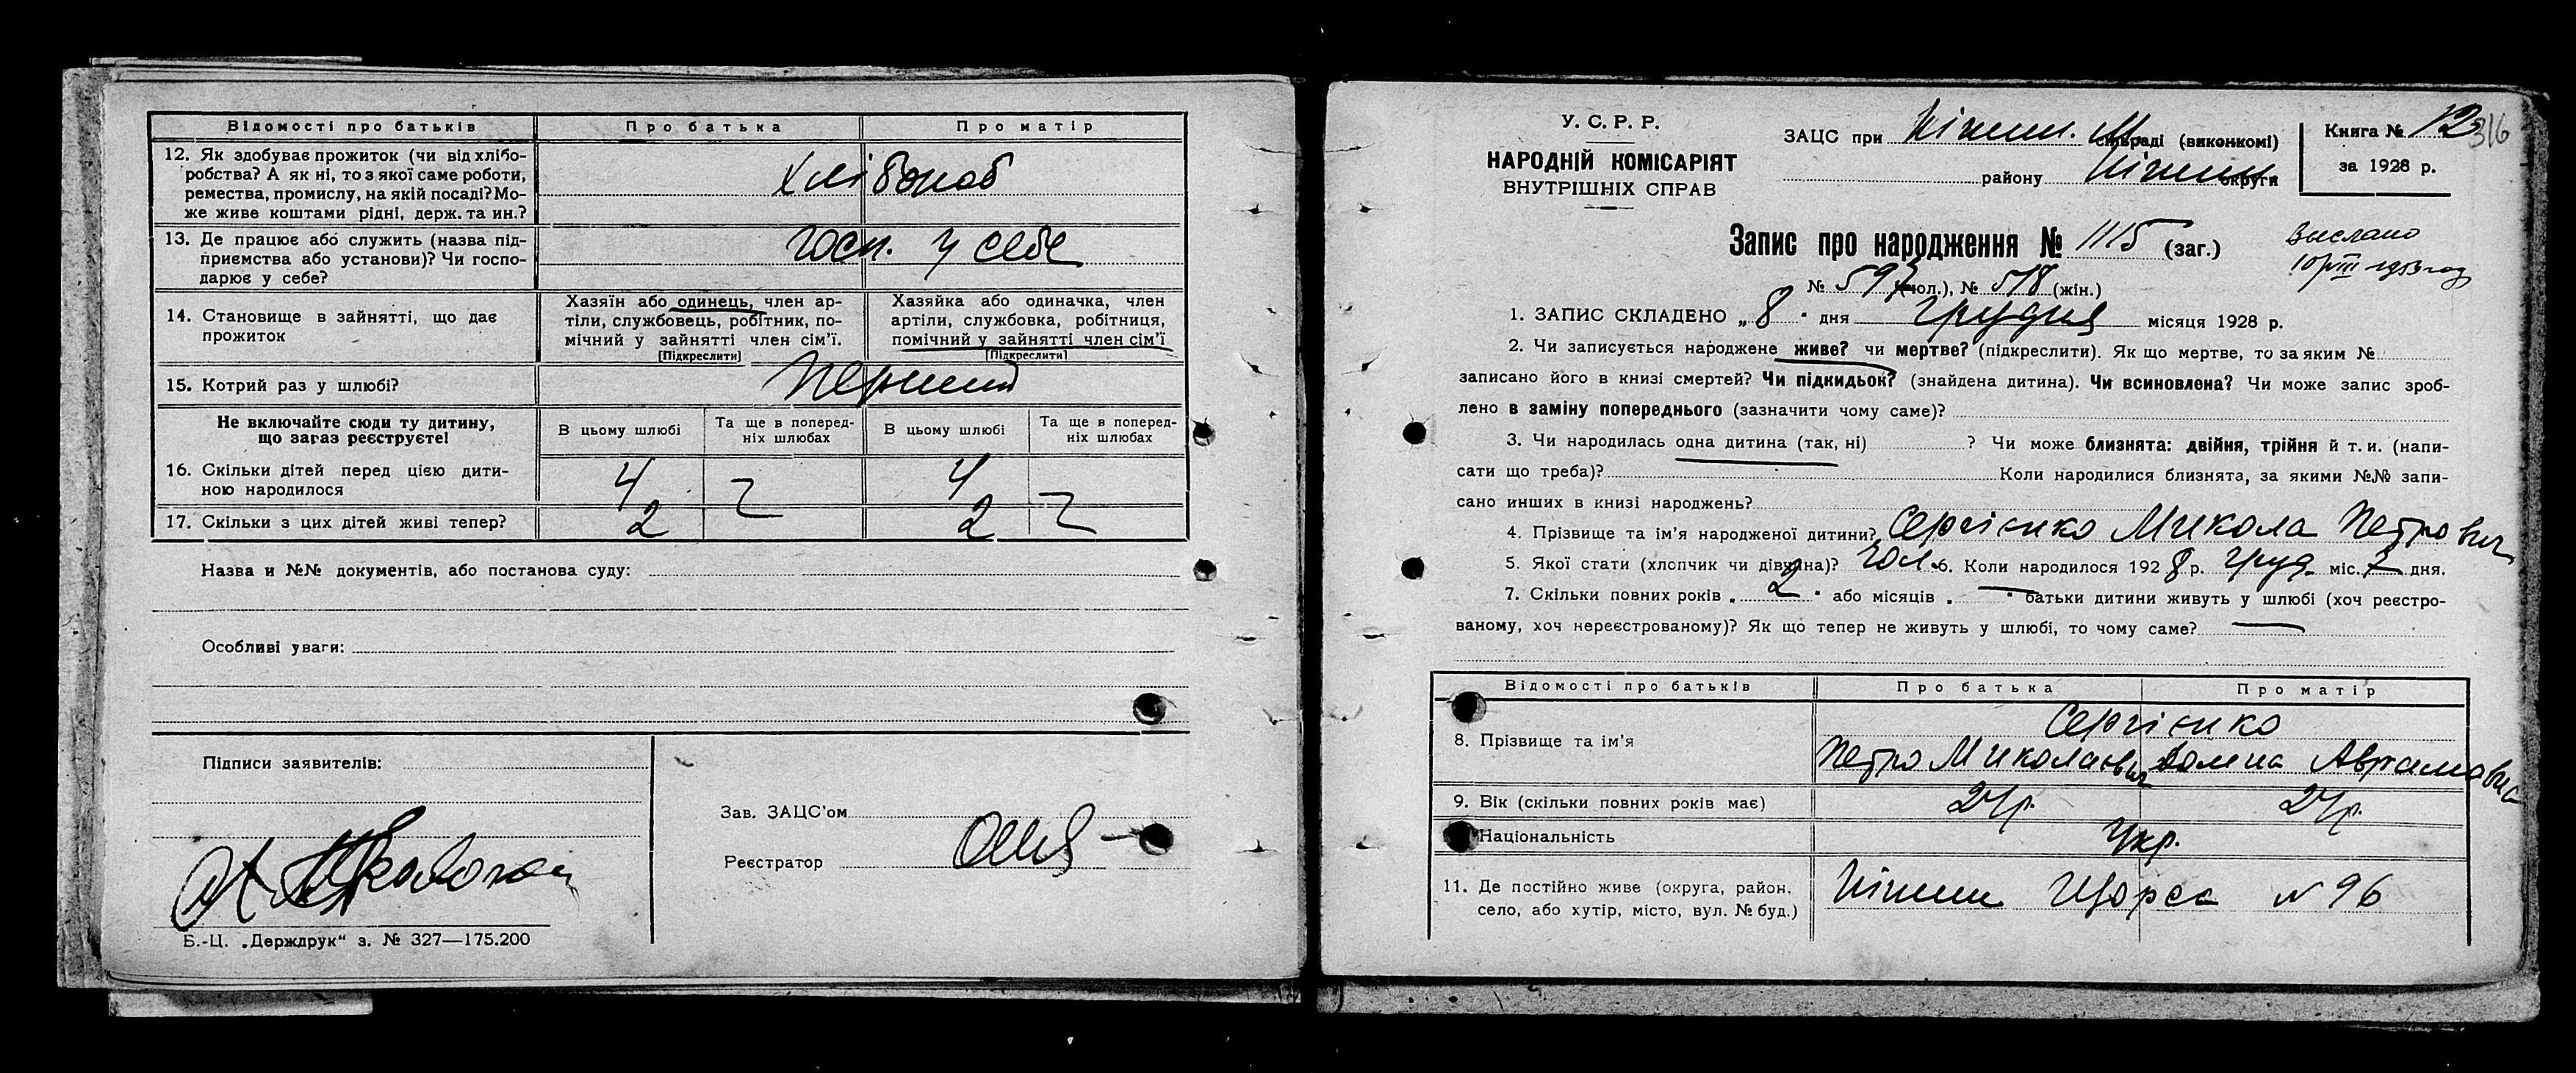 Відомості про батьків Про батька Про матір
12. Як здобуває прожиток (чи від хлібо-
робства? А як ні, то з якої саме роботи,
ремества, промислу, на якій посаді? Мо-
же живе коштами рідні, держ. та ин.?
хлібороб
13. Де працює або служить (назва під-
приємства або установи)? Чи госпо-
дарює у себе?
госп. у себе
14. Становище в зайнятті, що дає
прожиток
Хазяїн або одинець, член ар-
тілі, службовець, робітник, по-
мічний у зайнятті член сім'ї.
[Підкреслити]
Хазяйка або одиначка, член
артіли, службовка, робітниця,
помічний у зайнятті член сім'ї
[Підкреслити]
15. Котрий раз у шлюбі?
Перший
Не включайте сюди ту дитину,
що зараз реєструєте!
В цьому шлюбі
Та ще в поперед-
ніх шлюбах
В цьому шлюбі
Та ще в поперед-
ніх шлюбах
16. Скільки дітей перед цією дити-
ною народилося
4 4
17. Скільки з цих дітей живі тепер?
2 2
Назва и №№ документів, або постанова суду:
Особливі уваги:
Підписи заявителів:
Зав. ЗАЦС'ом
Реєстратор
Б.-Ц. „Держдрук“ з. № 327—175.200
У. С. Р. Р.
НАРОДНІЙ КОМІСАРІЯТ
ВНУТРІШНІХ СПРАВ
ЗАЦС при Ніжин. М сільраді (виконкомі)
району Ніжин округи
Книга № 12
316
за 1928 р.
Запис про народження № 1115 (заг.)
Выслано
№ 597 (чол.), № 518 (жін.)
1. ЗАПИС СКЛАДЕНО „8“ дня грудня місяця 1928 р.
2. Чи записується народжене живе? чи мертве? (підкреслити). Як що мертве, то за яким №
записано його в книзі смертей? Чи підкидьок? (знайдена дитина). Чи всиновлена? Чи може запис зроб-
лено в заміну попереднього (зазначити чому саме)?
3. Чи народилась одна дитина (так, ні) ? Чи може близнята: двійня, трійня й т. и. (напи-
сати що треба)? Коли народилися близнята, за якими №№ запи-
сано инших в книзі народжень?
4. Прізвище та ім'я народженої дитини? Сергієнко Микола Петрович
5. Якої статі (хлопчик чи дівчина)? чол. 6. Коли народилося 1928 р. груд. міс. 7 дня.
7. Скільки повних років „2“ або місяців „ “ батьки дитини живуть у шлюбі (хоч реєстро-
ваному, хоч нереєстрованому)? Як що тепер не живуть у шлюбі, то чому саме?
Відомості про батьків Про батька Про матір
8. Прізвище та ім'я
Сергієнко
Петро Миколаєвич Домна Аврамовна
9. Вік (скільки повних років має) 24р. 24р.
Національність Укр.
11. Де постійно живе (округа, район,
село, або хутір, місто, вул. № буд.)
Ніжин Щорса № 96